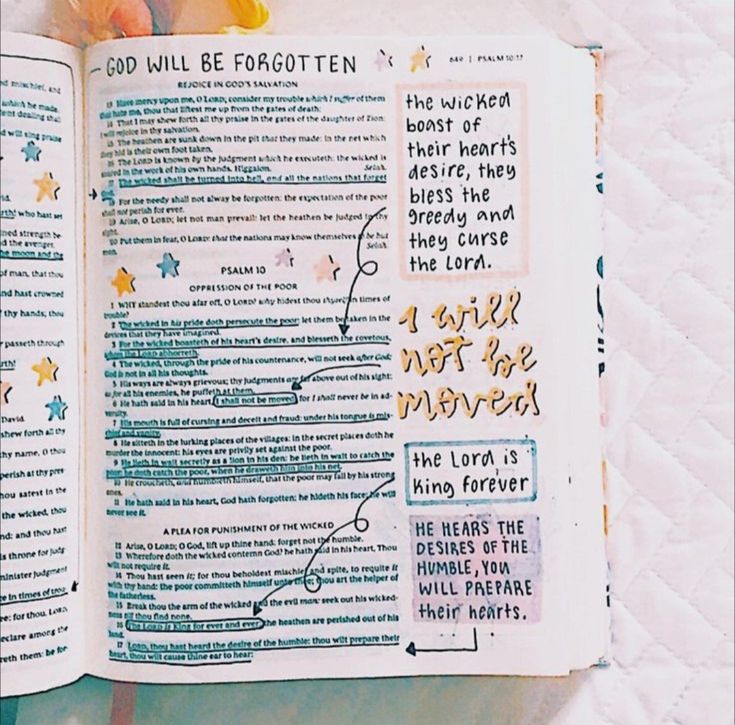 nd mischief, and
which he made.
ent dealing that
d will sing praise
rth! who hast set
ined strength be-
d the avenger.
he moon and the
of man, that thou
nd hast crowned
thy hands; thou
passeth through
rth!
David.
shew forth all thy
thy name, O thou
perish at thy pres-
hou satest in the
the wicked, thou
nd: and thou hast
is throne for judg-
minister judgment
e in times of trou-
ee: for thou, LORD,
eclare among the
reth them: he for-
GOD WILL BE FORGOTTEN
649 | PSALM 10:17
REJOICE IN GOD'S SALVATION
13 Have mercy upon me, O LORD; consider my trouble which I suffer of them
that hate me, thou that liftest me up from the gates of death:
14 That I may shew forth all thy praise in the gates of the daughter of Zion:
I will rejoice in thy salvation.
15 The heathen are sunk down in the pit that they made: in the net which
they hid is their own foot taken.
16 The LORD is known by the judgment which he executeth: the wicked is
snared in the work of his own hands. Higgaion. Selah.
17 The wicked shall be turned into hell, and all the nations that forget
18 For the needy shall not alway be forgotten: the expectation of the poor
shall not perish for ever.
19 Arise, O LORD; let not man prevail: let the heathen be judged in thy
sight.
20 Put them in fear, O LORD: that the nations may know themselves to be but
men. Selah.
PSALM 10
OPPRESSION OF THE POOR
1 WHY standest thou afar off, O LORD? why hidest thou thyself in times of
trouble?
2 The wicked in his pride doth persecute the poor: let them be taken in the
devices that they have imagined.
3 For the wicked boasteth of his heart's desire, and blesseth the covetous,
whom the LORD abhorreth.
4 The wicked, through the pride of his countenance, will not seek after God:
God is not in all his thoughts.
5 His ways are always grievous; thy judgments are far above out of his sight:
as for all his enemies, he puffeth at them.
6 He hath said in his heart, I shall not be moved: for I shall never be in ad-
versity.
7 His mouth is full of cursing and deceit and fraud: under his tongue is mis-
chief and vanity.
8 He sitteth in the lurking places of the villages: in the secret places doth he
murder the innocent: his eyes are privily set against the poor.
9 He lieth in wait secretly as a lion in his den: he lieth in wait to catch the
poor: he doth catch the poor, when he draweth him into his net.
10 He croucheth, and humbleth himself, that the poor may fall by his strong
ones.
11 He hath said in his heart, God hath forgotten: he hideth his face; he will
never see it.
A PLEA FOR PUNISHMENT OF THE WICKED
12 Arise, O LORD; O God, lift up thine hand: forget not the humble.
13 Wherefore doth the wicked contemn God? he hath said in his heart, Thou
wilt not require it.
14 Thou hast seen it; for thou beholdest mischief and spite, to requite it
with thy hand: the poor committeth himself unto thee; thou art the helper of
the fatherless.
15 Break thou the arm of the wicked and the evil man: seek out his wicked-
ness till thou find none.
16 The LORD is King for ever and ever: the heathen are perished out of his
land.
17 LORD, thou hast heard the desire of the humble: thou wilt prepare their
heart, thou wilt cause thine ear to hear:
the wicked
boast of
their heart's
desire, they
bless the
greedy and
they curse
the Lord.
I will
not be
moved
the Lord is
King forever
HE HEARS THE
DESIRES OF THE
HUMBLE, YOU
WILL PREPARE
their hearts.